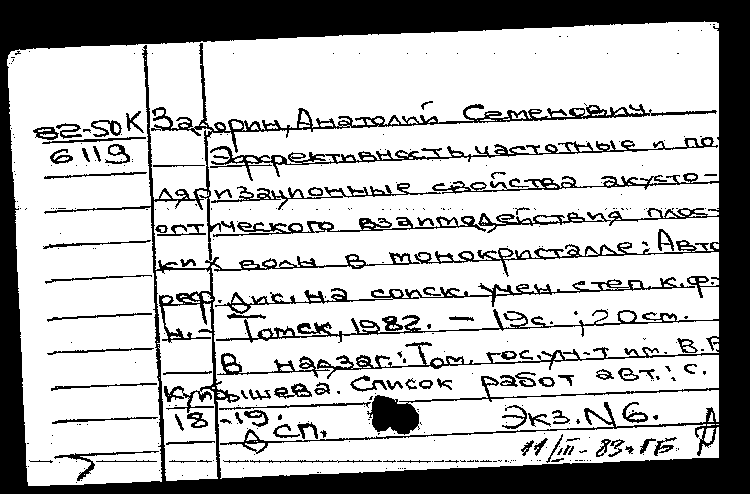 82-50К Задорин, Анатолий Семенович.
6119 Эффективность, частотные и по
ляризационные свойства акусто-
оптического взаимодействия плос-
ких волн в монокристалле: Авто
реф. дис. на соиск. учен. степ. к.ф.-
н. - Томск, 1982. - 19с. ; 20см.
В надзаг.: Том. гос. ун-т им. В.В
Куйбышева. Список работ авт.: с.
18-19.
сп. Экз. N 6.
11/III-83г.